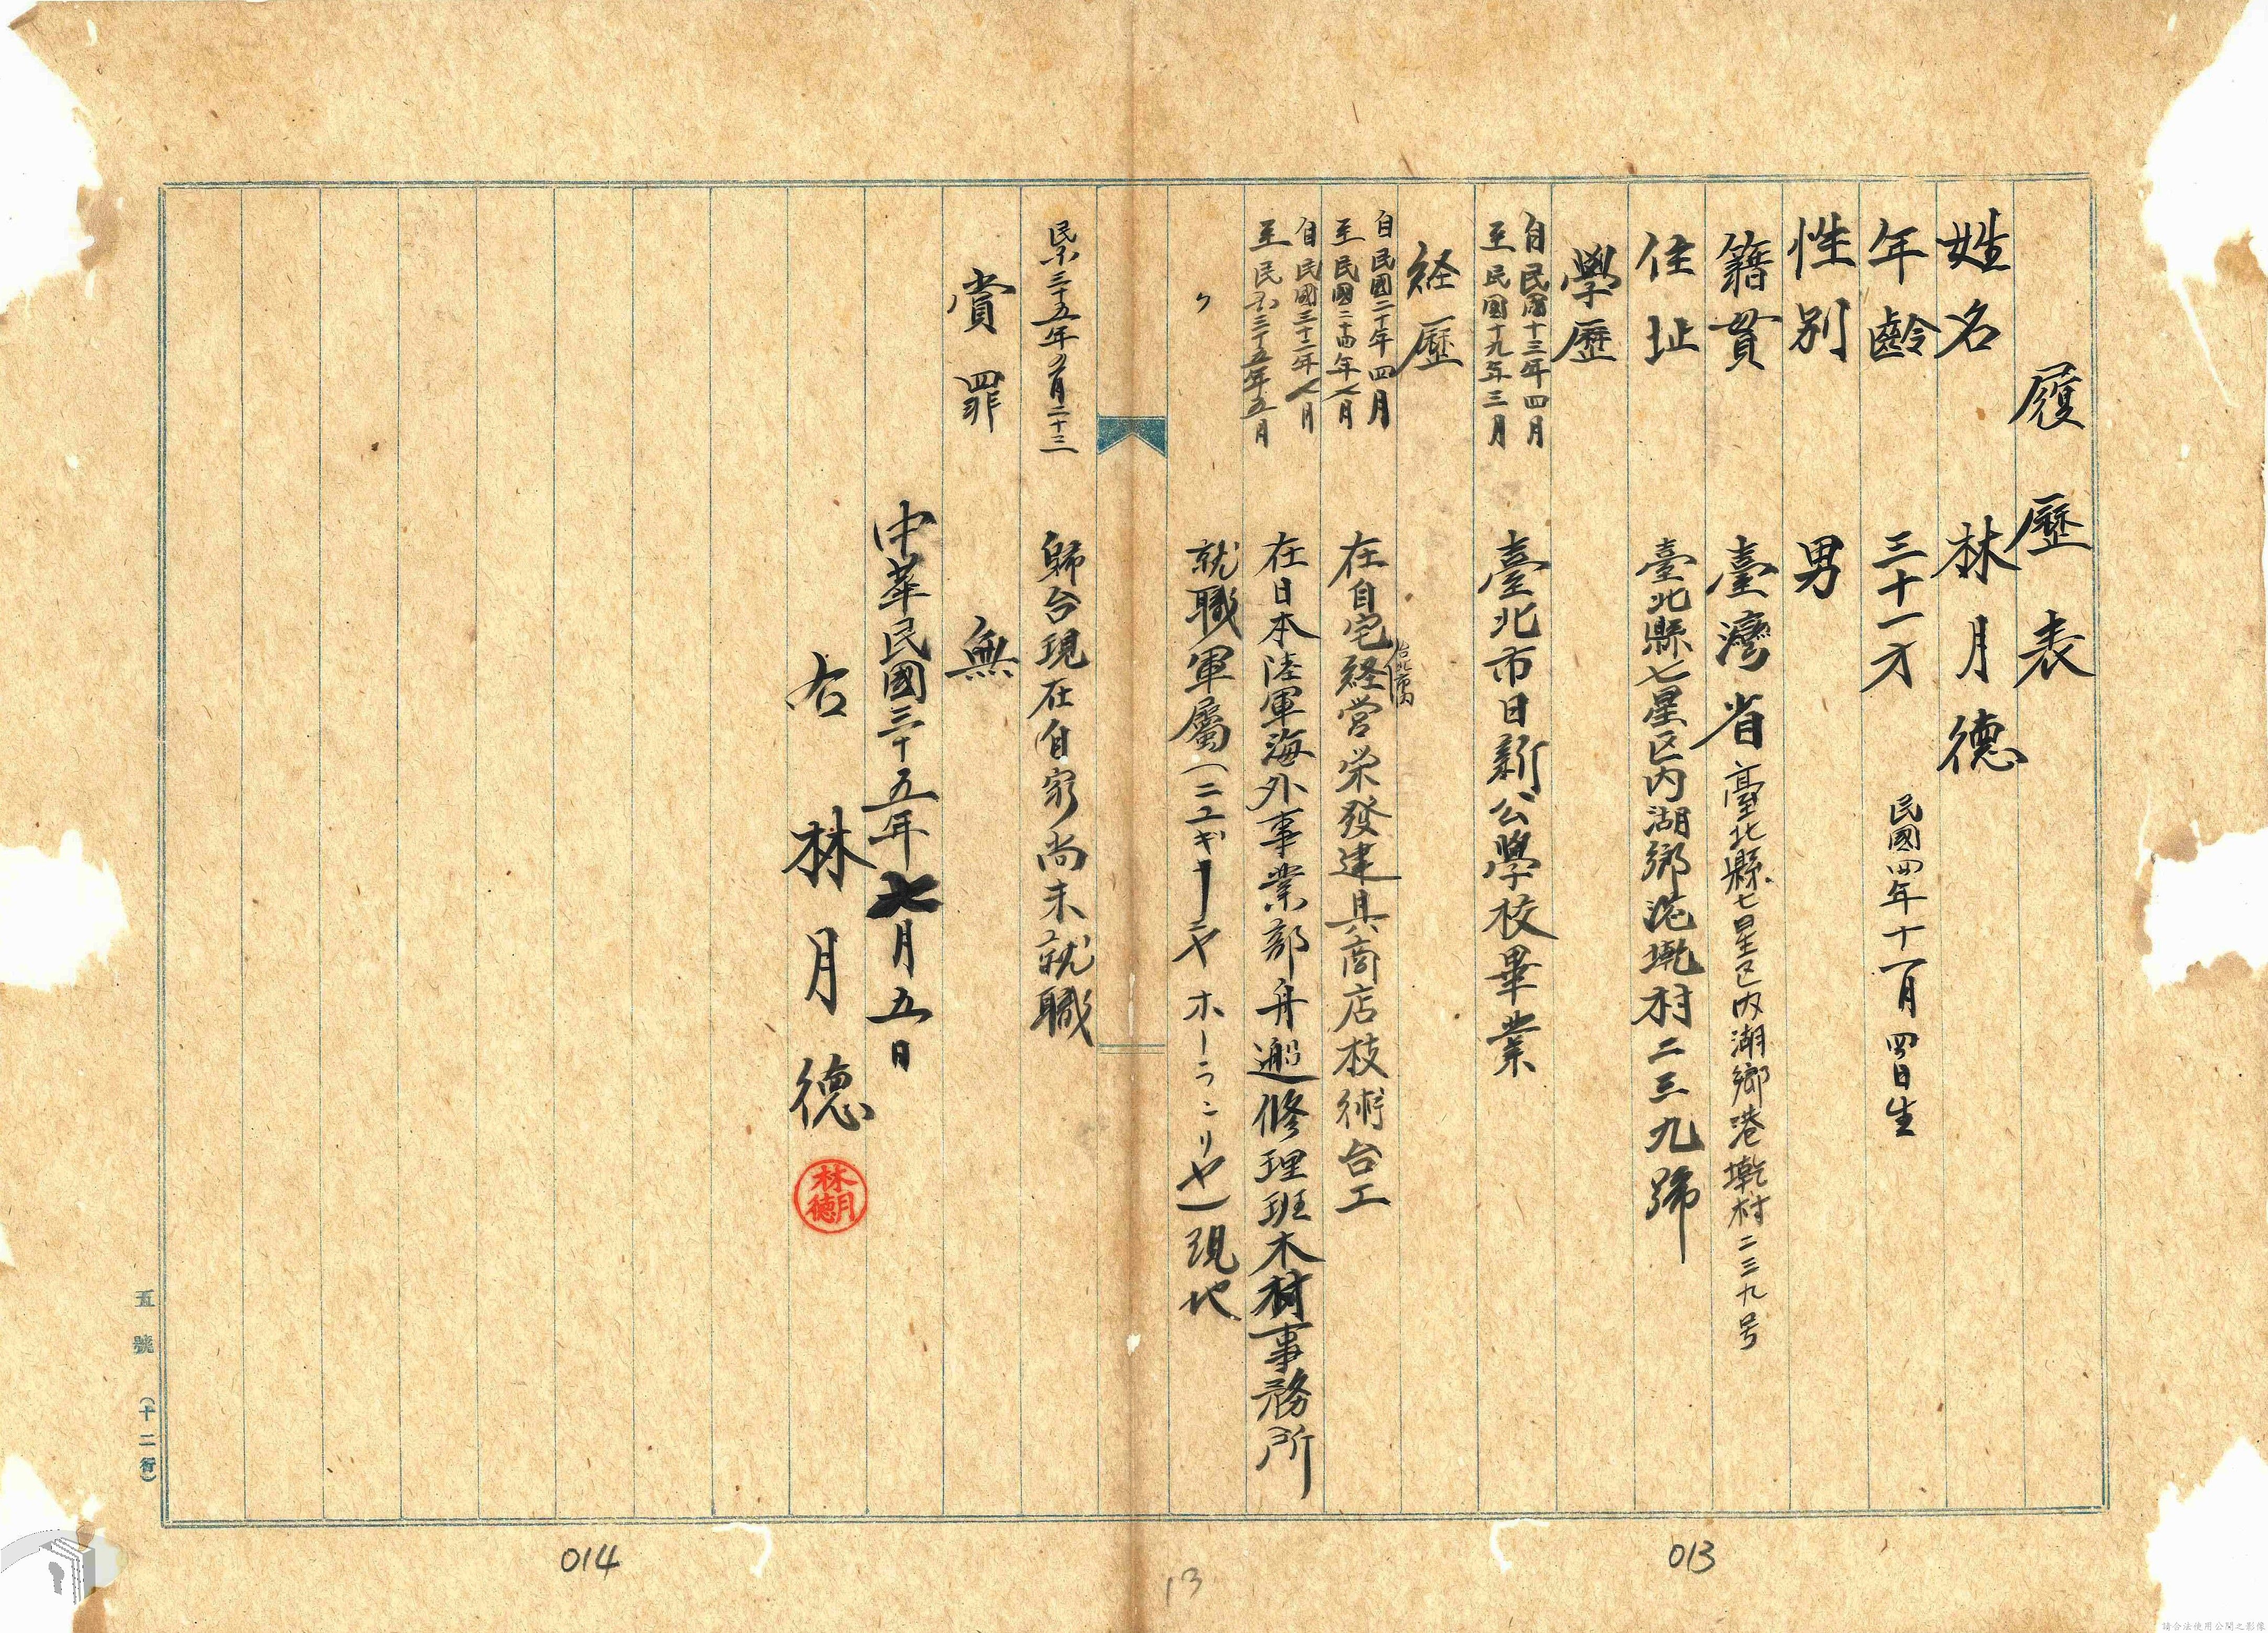 履歷表
姓名 林月德
年齡 三十一才 民國四年十一月四日生
性別 男
籍貫 臺灣省 臺北縣七星区内湖鄉港墘村二三九号
住址 臺北縣七星区内湖鄉港墘村二三九號
學歷
自民國十三年四月
至民國十九年三月 臺北市日新公學校畢業
経歷
自民國二十年四月
至民國二十四年 月 在自宅経営栄發建具商店技術台工
台北市内
自民國三十二年 月
至民国三十五年五月 在日本陸軍海外事業部舟艇修理班木材事務所
〃 就職軍屬(ニユギーニヤ ホーランリヤ)現地
民国三十五年 月二十三 歸台現在自家尚未就職
賞罪 無
中華民國三十五年七月五日
右 林月德
林月德
五號 (十二行)
014
13
013
請合法使用公開之影像